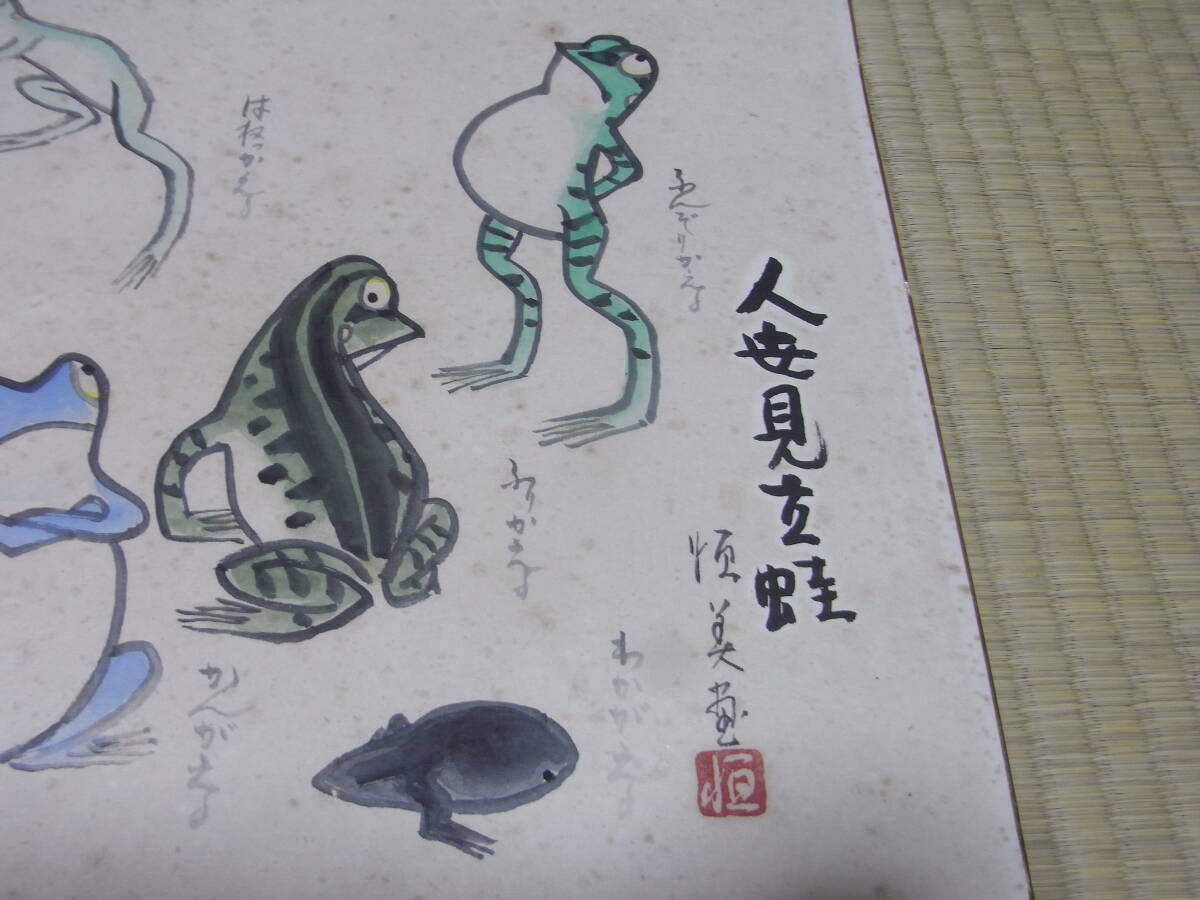 人世見立蛙
恒美画
恒
ふんぞりかえる
ふりかえる
わかがえる
はねっかえる
かんがえる